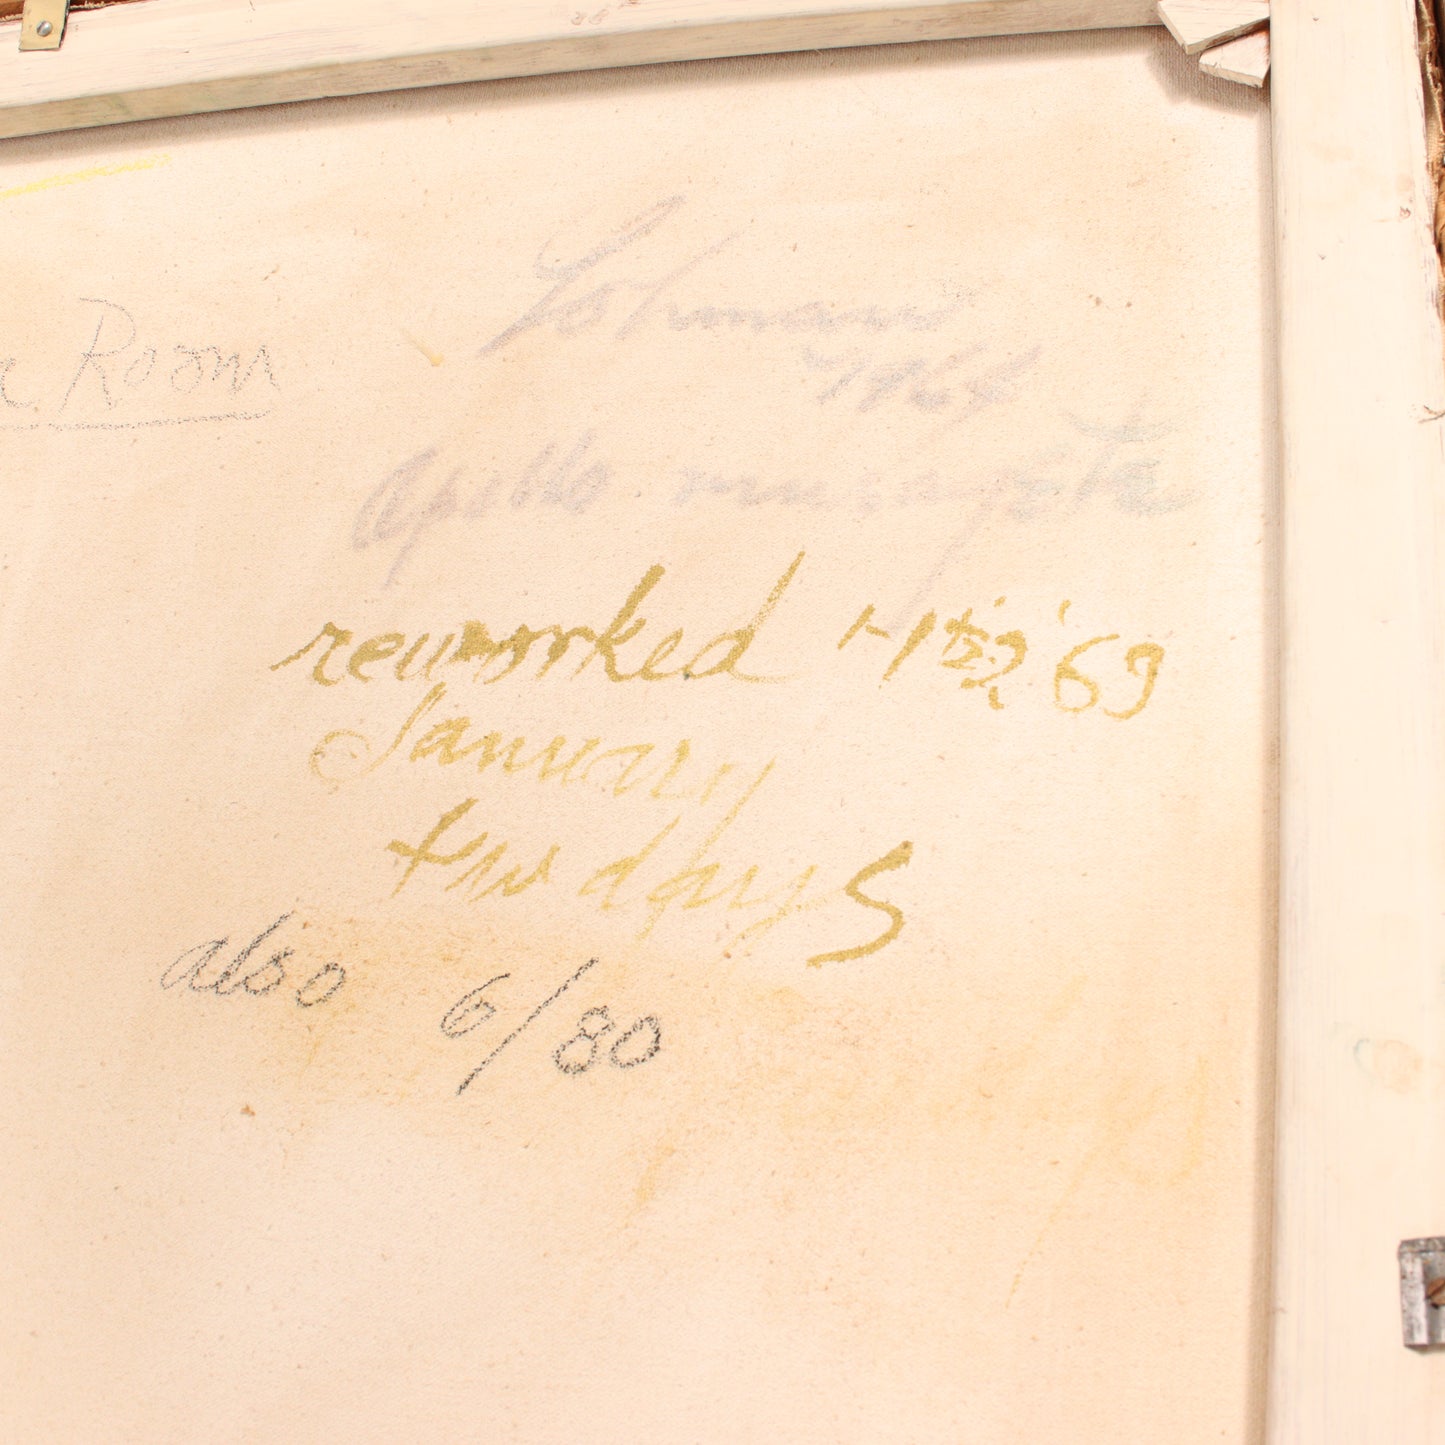 Room
Lohman
1964
Apollo musagete
reworked 1-1 & 2 '69
January
two days
also 6/80